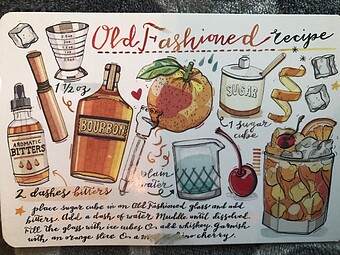 Old Fashioned recipe
1 1/2 oz
AROMATIC
BITTERS
BOURBON
SUGAR
1 sugar
cube
plain
water
2 dashes bitters
place sugar cube in an Old Fashioned glass and add
bitters. Add a dash of water. Muddle until dissolved.
Fill the glass with ice cubes & add whiskey. Garnish
with an orange slice & a maraschino cherry.